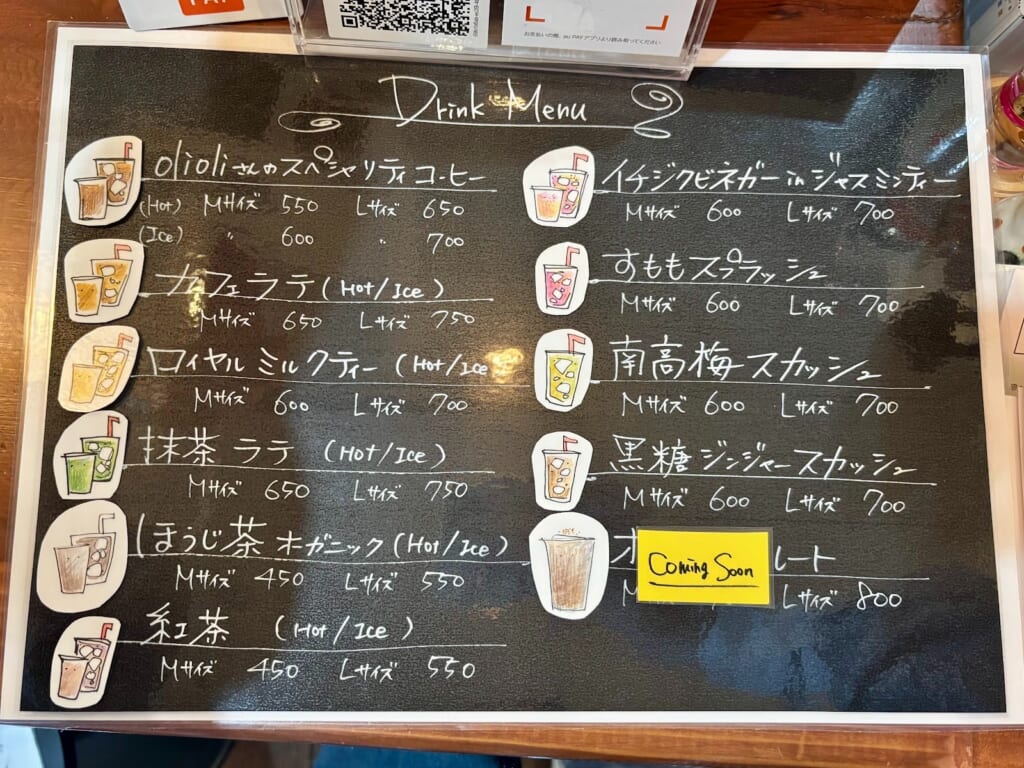 PAY
お支払いの際、au PAY アプリより読み取ってください
Drink Menu
olioliさんのスペシャリティコーヒー
(Hot) Mサイズ 550 Lサイズ 650
(Ice) 〃 600 〃 700
カフェラテ (Hot/Ice)
Mサイズ 650 Lサイズ 750
ロイヤルミルクティー (Hot/Ice
Mサイズ 600 Lサイズ 700
抹茶ラテ (Hot/Ice)
Mサイズ 650 Lサイズ 750
ほうじ茶 オーガニック (Hot/Ice)
Mサイズ 450 Lサイズ 550
紅茶 (Hot/Ice)
Mサイズ 450 Lサイズ 550
イチジクビネガー in ジャスミンティー
Mサイズ 600 Lサイズ 700
すももスプラッシュ
Mサイズ 600 Lサイズ 700
南高梅スカッシュ
Mサイズ 600 Lサイズ 700
黒糖ジンジャースカッシュ
Mサイズ 600 Lサイズ 700
レート
Coming Soon
M Lサイズ 800